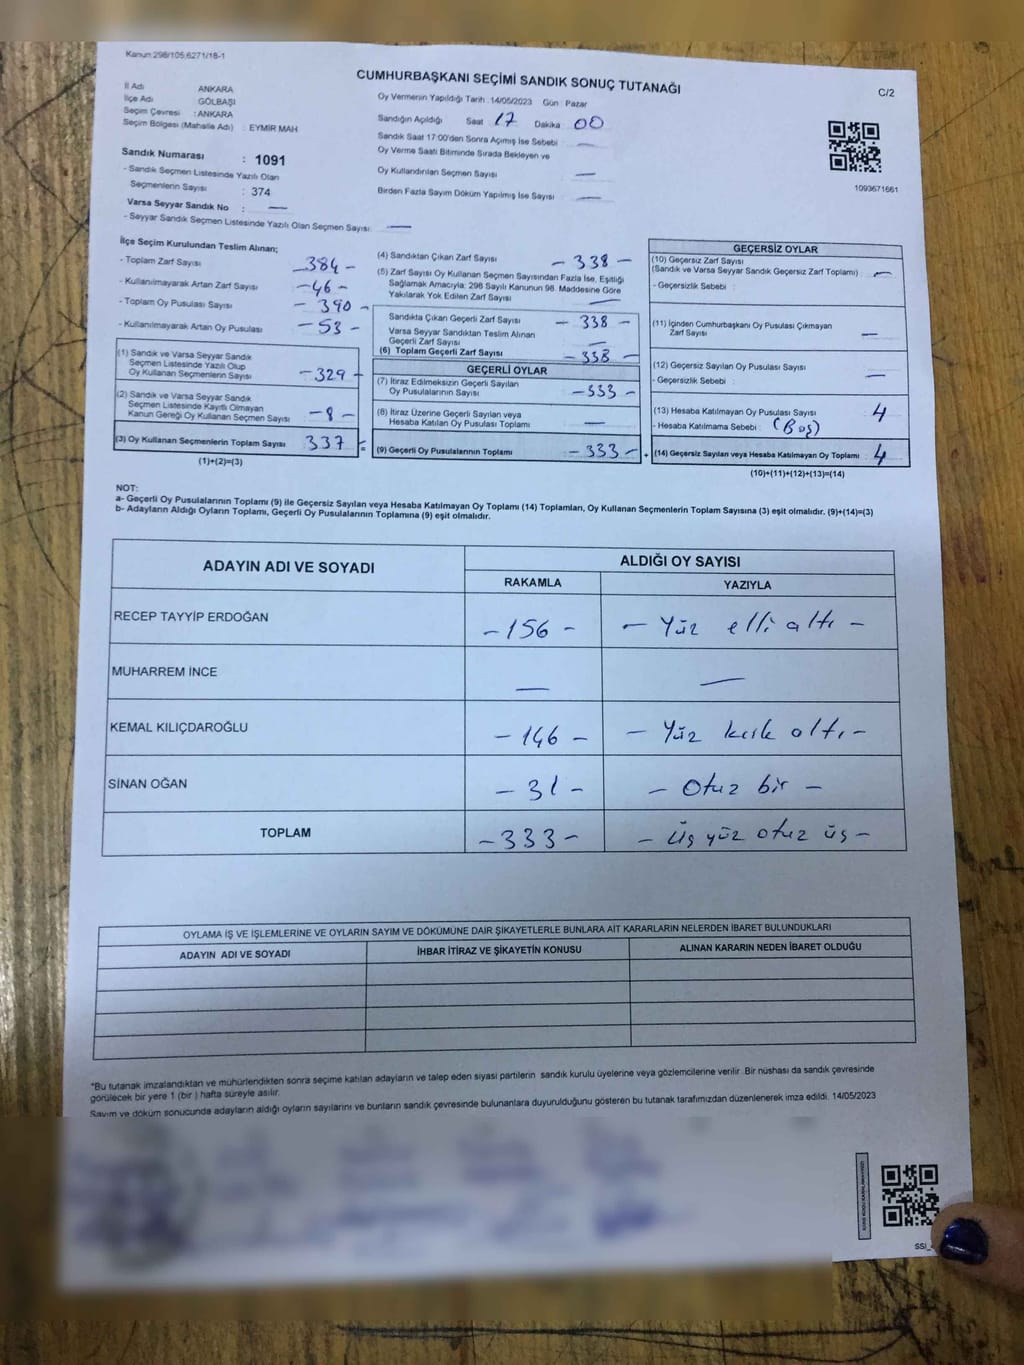 Kanun:298/105,6271/18-1
CUMHURBAŞKANI SEÇİMİ SANDIK SONUÇ TUTANAĞI
C/2
İl Adı ANKARA
İlçe Adı GÖLBAŞI
Seçim Çevresi : ANKARA
Seçim Bölgesi (Mahalle Adı) : EYMİR MAH
Oy Vermenin Yapıldığı Tarih : 14/05/2023 Gün : Pazar
Sandığın Açıldığı Saat 17 Dakika 00
Sandık Saat 17:00'den Sonra Açımış İse Sebebi —
Oy Verme Saati Bitiminde Sırada Bekleyen ve
Oy Kullandırılan Seçmen Sayısı —
Birden Fazla Sayım Döküm Yapılmış İse Sayısı —
1093671661
Sandık Numarası : 1091
- Sandık Seçmen Listesinde Yazılı Olan
Seçmenlerin Sayısı : 374
Varsa Seyyar Sandık No : —
- Seyyar Sandık Seçmen Listesinde Yazılı Olan Seçmen Sayısı: —
İlçe Seçim Kurulundan Teslim Alınan;
- Toplam Zarf Sayısı 384 -
- Kullanılmayarak Artan Zarf Sayısı -46-
- Toplam Oy Pusulası Sayısı - 390 -
- Kullanılmayarak Artan Oy Pusulası -53-
(1) Sandık ve Varsa Seyyar Sandık
Seçmen Listesinde Yazılı Olup
Oy Kullanan Seçmenlerin Sayısı -329-
(2) Sandık ve Varsa Seyyar Sandık
Seçmen Listesinde Kayıtlı Olmayan
Kanun Gereği Oy Kullanan Seçmen Sayısı -8-
(3) Oy Kullanan Seçmenlerin Toplam Sayısı 337 =
(1)+(2)=(3)
(4) Sandıktan Çıkan Zarf Sayısı - 338 -
(5) Zarf Sayısı Oy Kullanan Seçmen Sayısından Fazla İse, Eşitliği
Sağlamak Amacıyla: 298 Sayılı Kanunun 98. Maddesine Göre
Yakılarak Yok Edilen Zarf Sayısı —
Sandıkta Çıkan Geçerli Zarf Sayısı - 338 -
Varsa Seyyar Sandıktan Teslim Alınan
Geçerli Zarf Sayısı —
(6) Toplam Geçerli Zarf Sayısı -338-
GEÇERLİ OYLAR
(7) İtiraz Edilmeksizin Geçerli Sayılan
Oy Pusulalarının Sayısı -333-
(8) İtiraz Üzerine Geçerli Sayılan veya
Hesaba Katılan Oy Pusulası Toplamı —
(9) Geçerli Oy Pusulalarının Toplamı -333- +
GEÇERSİZ OYLAR
(10) Geçersiz Zarf Sayısı
(Sandık ve Varsa Seyyar Sandık Geçersiz Zarf Toplamı) —
- Geçersizlik Sebebi :
(11) İçinden Cumhurbaşkanı Oy Pusulası Çıkmayan
Zarf Sayısı —
(12) Geçersiz Sayılan Oy Pusulası Sayısı —
- Geçersizlik Sebebi :
(13) Hesaba Katılmayan Oy Pusulası Sayısı 4
- Hesaba Katılmama Sebebi : (Boş)
(14) Geçersiz Sayılan veya Hesaba Katılmayan Oy Toplamı : 4
(10)+(11)+(12)+(13)=(14)
NOT:
a- Geçerli Oy Pusulalarının Toplamı (9) ile Geçersiz Sayılan veya Hesaba Katılmayan Oy Toplamı (14) Toplamları, Oy Kullanan Seçmenlerin Toplam Sayısına (3) eşit olmalıdır. (9)+(14)=(3)
b- Adayların Aldığı Oyların Toplamı, Geçerli Oy Pusulalarının Toplamına (9) eşit olmalıdır.
ADAYIN ADI VE SOYADI ALDIĞI OY SAYISI
RAKAMLA YAZIYLA
RECEP TAYYİP ERDOĞAN -156- - Yüz elli altı -
MUHARREM İNCE — —
KEMAL KILIÇDAROĞLU -146- - Yüz kırk altı -
SİNAN OĞAN -31- - Otuz bir -
TOPLAM -333- - Üç yüz otuz üç -
OYLAMA İŞ VE İŞLEMLERİNE VE OYLARIN SAYIM VE DÖKÜMÜNE DAİR ŞİKAYETLERLE BUNLARA AİT KARARLARIN NELERDEN İBARET BULUNDUKLARI
ADAYIN ADI VE SOYADI İHBAR İTİRAZ VE ŞİKAYETİN KONUSU ALINAN KARARIN NEDEN İBARET OLDUĞU
*Bu tutanak imzalandıktan ve mühürlendikten sonra seçime katılan adayların ve talep eden siyasi partilerin sandık kurulu üyelerine veya gözlemcilerine verilir. Bir nüshası da sandık çevresinde
görülecek bir yere 1 (bir ) hafta süreyle asılır.
Sayım ve döküm sonucunda adayların aldığı oyların sayılarını ve bunların sandık çevresinde bulunanlara duyurulduğunu gösteren bu tutanak tarafımızdan düzenlenerek imza edildi. 14/05/2023
SSİ_